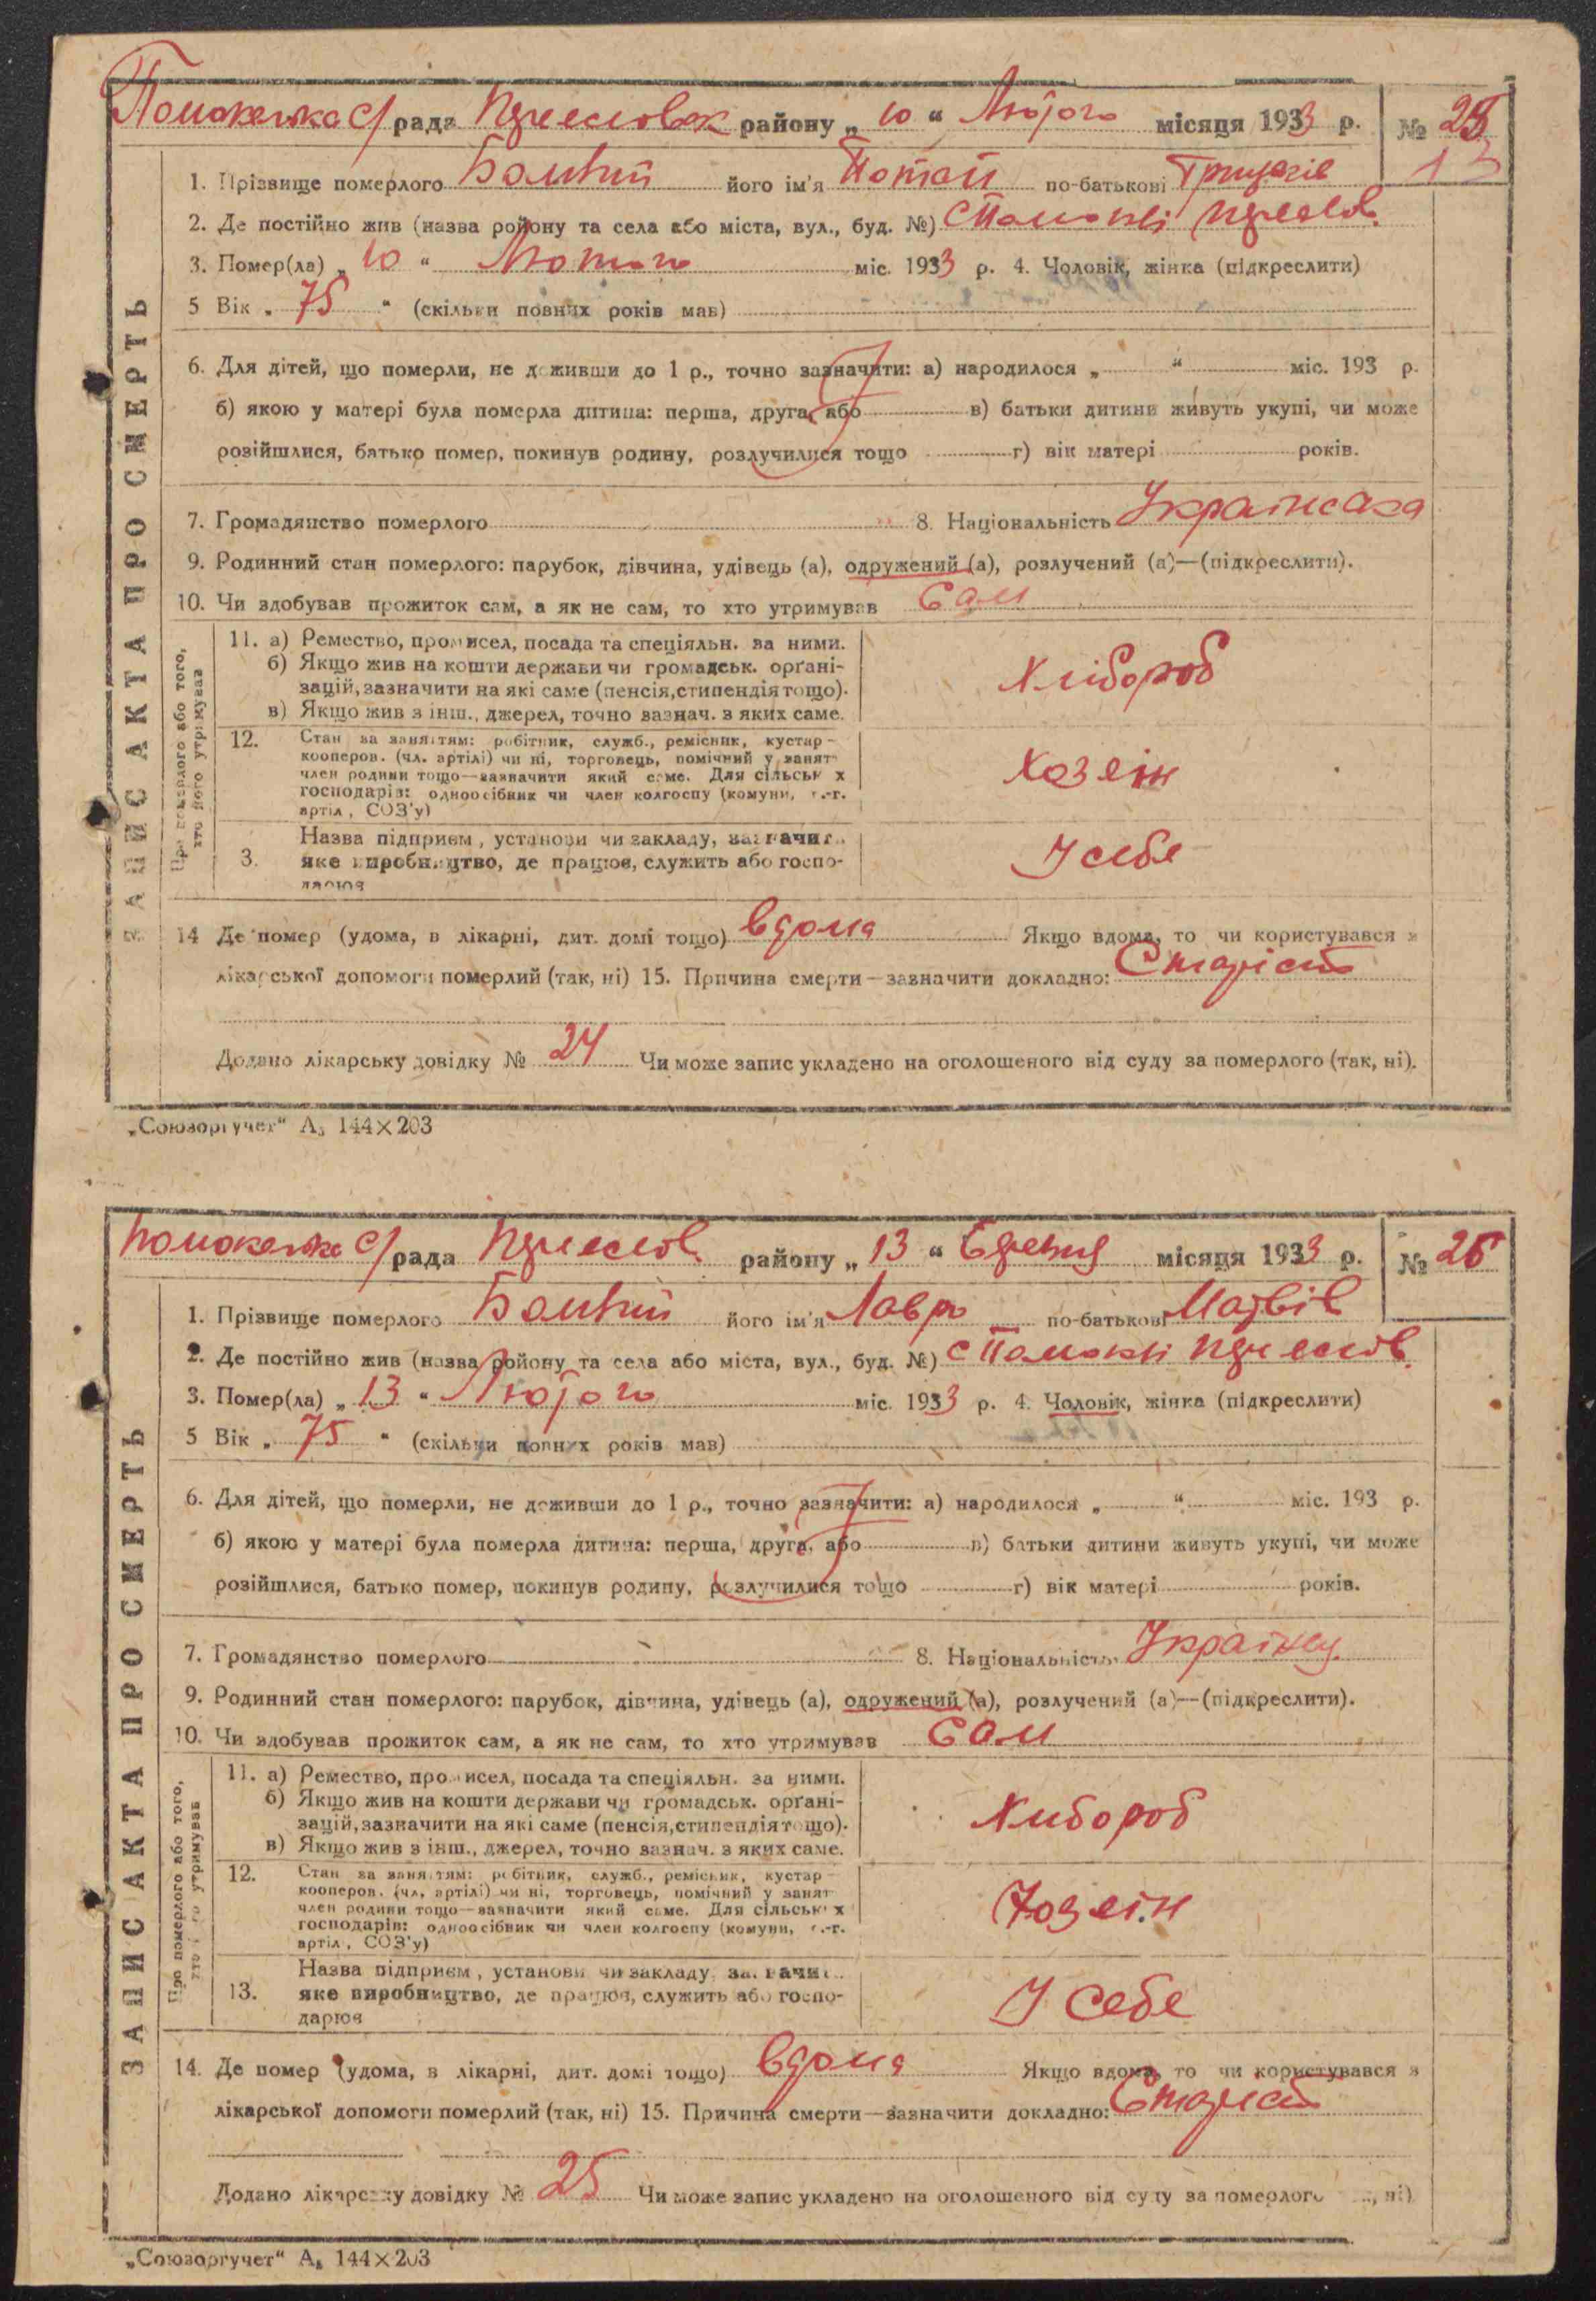 рада району „ 10 “ Лютого місяця 1933 р. №
1. Прізвище померлого його ім'я по-батькові
2. Де постійно жив (назва району та села або міста, вул., буд. №) с
3. Помер(ла) „ 10 “ Лютого міс. 1933 р. 4. Чоловік, жінка (підкреслити)
5 Вік „ 75 “ (скільки повних років мав)
6. Для дітей, що померли, не доживши до 1 р., точно зазначити: а) народилося „ “ міс. 193 р.
б) якою у матері була померла дитина: перша, друга, або в) батьки дитини живуть укупі, чи може
розійшлися, батько помер, покинув родину, розлучилися тощо г) вік матері років.
7. Громадянство померлого 8. Національність
9. Родинний стан померлого: парубок, дівчина, удівець (а), одружений (а), розлучений (а)—(підкреслити).
10. Чи здобував прожиток сам, а як не сам, то хто утримував Сам
ЗАПИС АКТА ПРО СМЕРТЬ
Про померлого або того,
хто його утримував
11. а) Ремество, промисел, посада та спеціяльн. за ними.
б) Якщо жив на кошти держави чи громадськ. орґані-
зацій, зазначити на які саме (пенсія, стипендія тощо).
в) Якщо жив з інш., джерел, точно зазнач. з яких саме.
Хлібороб
12. Стан за заняттям: робітник, служб., ремісник, кустар-
кооперов. (чл. артілі) чи ні, торговець, помічний у занят
член родини тощо—зазначити який саме. Для сільськ х
господарів: одноосібник чи член колгоспу (комуни, с.-г.
артіл, СОЗ'у)
Хозяін
3. Назва підприєм, установи чи закладу, зазначит
яке виробництво, де працює, служить або госпо-
дарює
У себе
14 Де помер (удома, в лікарні, дит. домі тощо) вдома Якщо вдома, то чи користувався з
лікарської допомоги померлий (так, ні) 15. Причина смерти—зазначити докладно: Старість
Додано лікарську довідку № 24 Чи може запис укладено на оголошеного від суду за померлого (так, ні).
„Союзоргучет“ А₅ 144×203
рада району „ 13 “ місяця 1933 р. №
1. Прізвище померлого його ім'я Лавро по-батькові Матвів
2. Де постійно жив (назва району та села або міста, вул., буд. №) с
3. Помер(ла) „ 13 “ Лютого міс. 1933 р. 4. Чоловік, жінка (підкреслити)
5 Вік „ 75 “ (скільки повних років мав)
6. Для дітей, що померли, не доживши до 1 р., точно зазначити: а) народилося „ “ міс. 193 р.
б) якою у матері була померла дитина: перша, друга, або в) батьки дитини живуть укупі, чи може
розійшлися, батько помер, покинув родину, розлучилися тощо г) вік матері років.
7. Громадянство померлого 8. Національність
9. Родинний стан померлого: парубок, дівчина, удівець (а), одружений (а), розлучений (а)—(підкреслити).
10. Чи здобував прожиток сам, а як не сам, то хто утримував Сам
ЗАПИС АКТА ПРО СМЕРТЬ
Про померлого або того,
хто його утримував
11. а) Ремество, промисел, посада та спеціяльн. за ними.
б) Якщо жив на кошти держави чи громадськ. орґані-
зацій, зазначити на які саме (пенсія, стипендія тощо).
в) Якщо жив з інш., джерел, точно зазнач. з яких саме.
Хлібороб
12. Стан за заняттям: робітник, служб., ремісник, кустар-
кооперов. (чл. артілі) чи ні, торговець, помічний у занят
член родини тощо—зазначити який саме. Для сільськ х
господарів: одноосібник чи член колгоспу (комуни, с.-г.
артіл, СОЗ'у)
Хозяін
13. Назва підприєм, установи чи закладу, зазначит
яке виробництво, де працює, служить або госпо-
дарює
У себе
14. Де помер (удома, в лікарні, дит. домі тощо) вдома Якщо вдома, то чи користувався з
лікарської допомоги померлий (так, ні) 15. Причина смерти—зазначити докладно: Старість
Додано лікарську довідку № 25 Чи може запис укладено на оголошеного від суду за померлого ні)
„Союзоргучет“ А₅ 144×203